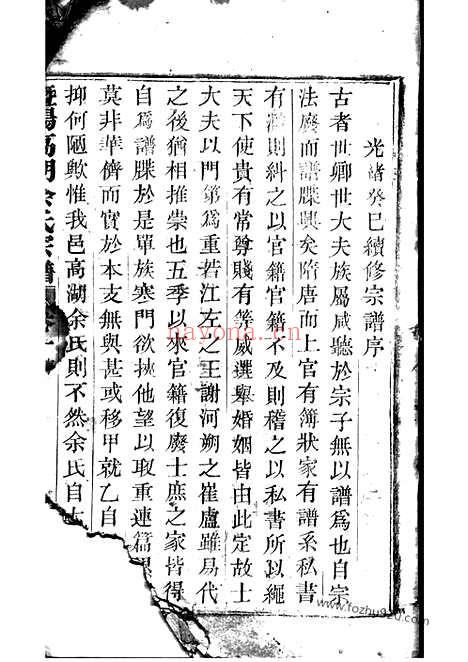 光緒癸巳續修宗譜序
古者世卿世大夫族屬咸聽於宗子無以譜為也自宗
法廢而譜牒興矣隋唐而上官有簿狀家有譜系私書
有濫則糾之以官籍官籍不及則稽之以私書所以繩
天下使貴有常尊賤有等威選舉婚姻皆由此定故士
大夫以門第為重若江左之王謝河朔之崔盧雖易代
之後猶相推崇也五季以來官籍復廢士庶之家皆得
自為譜牒於是單族寒門欲挾他望以取重連篇累
莫非華儕而實於本支無與甚或移甲就乙自
抑何陋歟惟我邑高湖余氏則不然余氏自
暨陽高湖余氏宗譜
nayona.cn
www.fozhu920.com